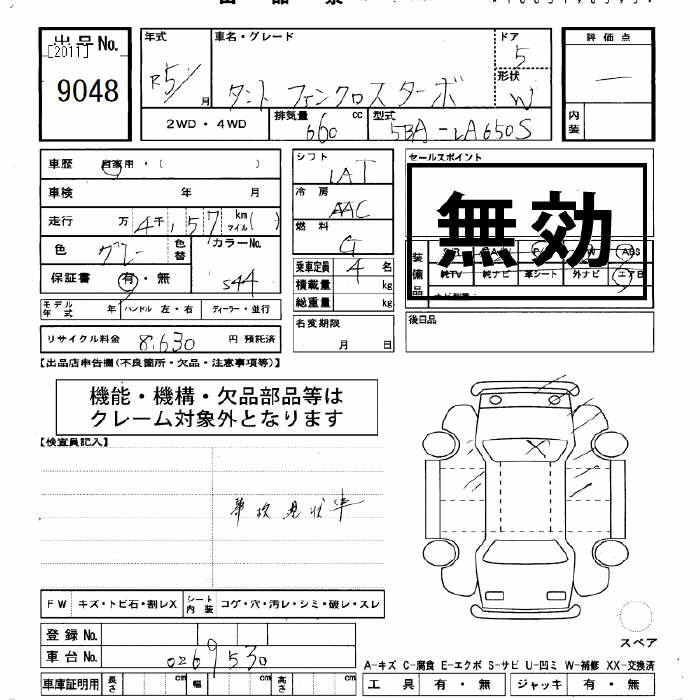 出品No.
[2011]
9048
年式
R5/
月
車名・グレード
タント ファンクロスターボ
ドア
5
形状
W
評価点
—
内装
2WD・4WD
排気量
660
cc
型式
5BA-LA650S
車歴 自家用・( )
車検 年 月
走行 万 4千,157 km マイル( )
色 グレー 色替
カラーNo.
S44
保証書 有・無
モデル年式 年 ハンドル 左・右 ディーラー・並行
リサイクル料金 8,630 円 預託済
シフト
IAT
冷房
AAC
燃料
G
乗車定員 4 名
積載量 kg
総重量 kg
名変期限
月 日
セールスポイント
無効
装備品
ABS
純TV 純ナビ 革シート 外ナビ エアB
後日品
【出品店申告欄(不良箇所・欠品・注意事項等)】
機能・機構・欠品部品等は
クレーム対象外となります
【検査員記入】
事故現状車
FW キズ・トビ石・割レX シート内装 コゲ・穴・汚レ・シミ・破レ・スレ
登録No.
車台No. 0269530
車庫証明用 長さ cm 幅 cm 高さ cm
スペア
A-キズ C-腐食 E-エクボ S-サビ U-凹ミ W-補修 XX-交換済
工具 有・無 ジャッキ 有・無